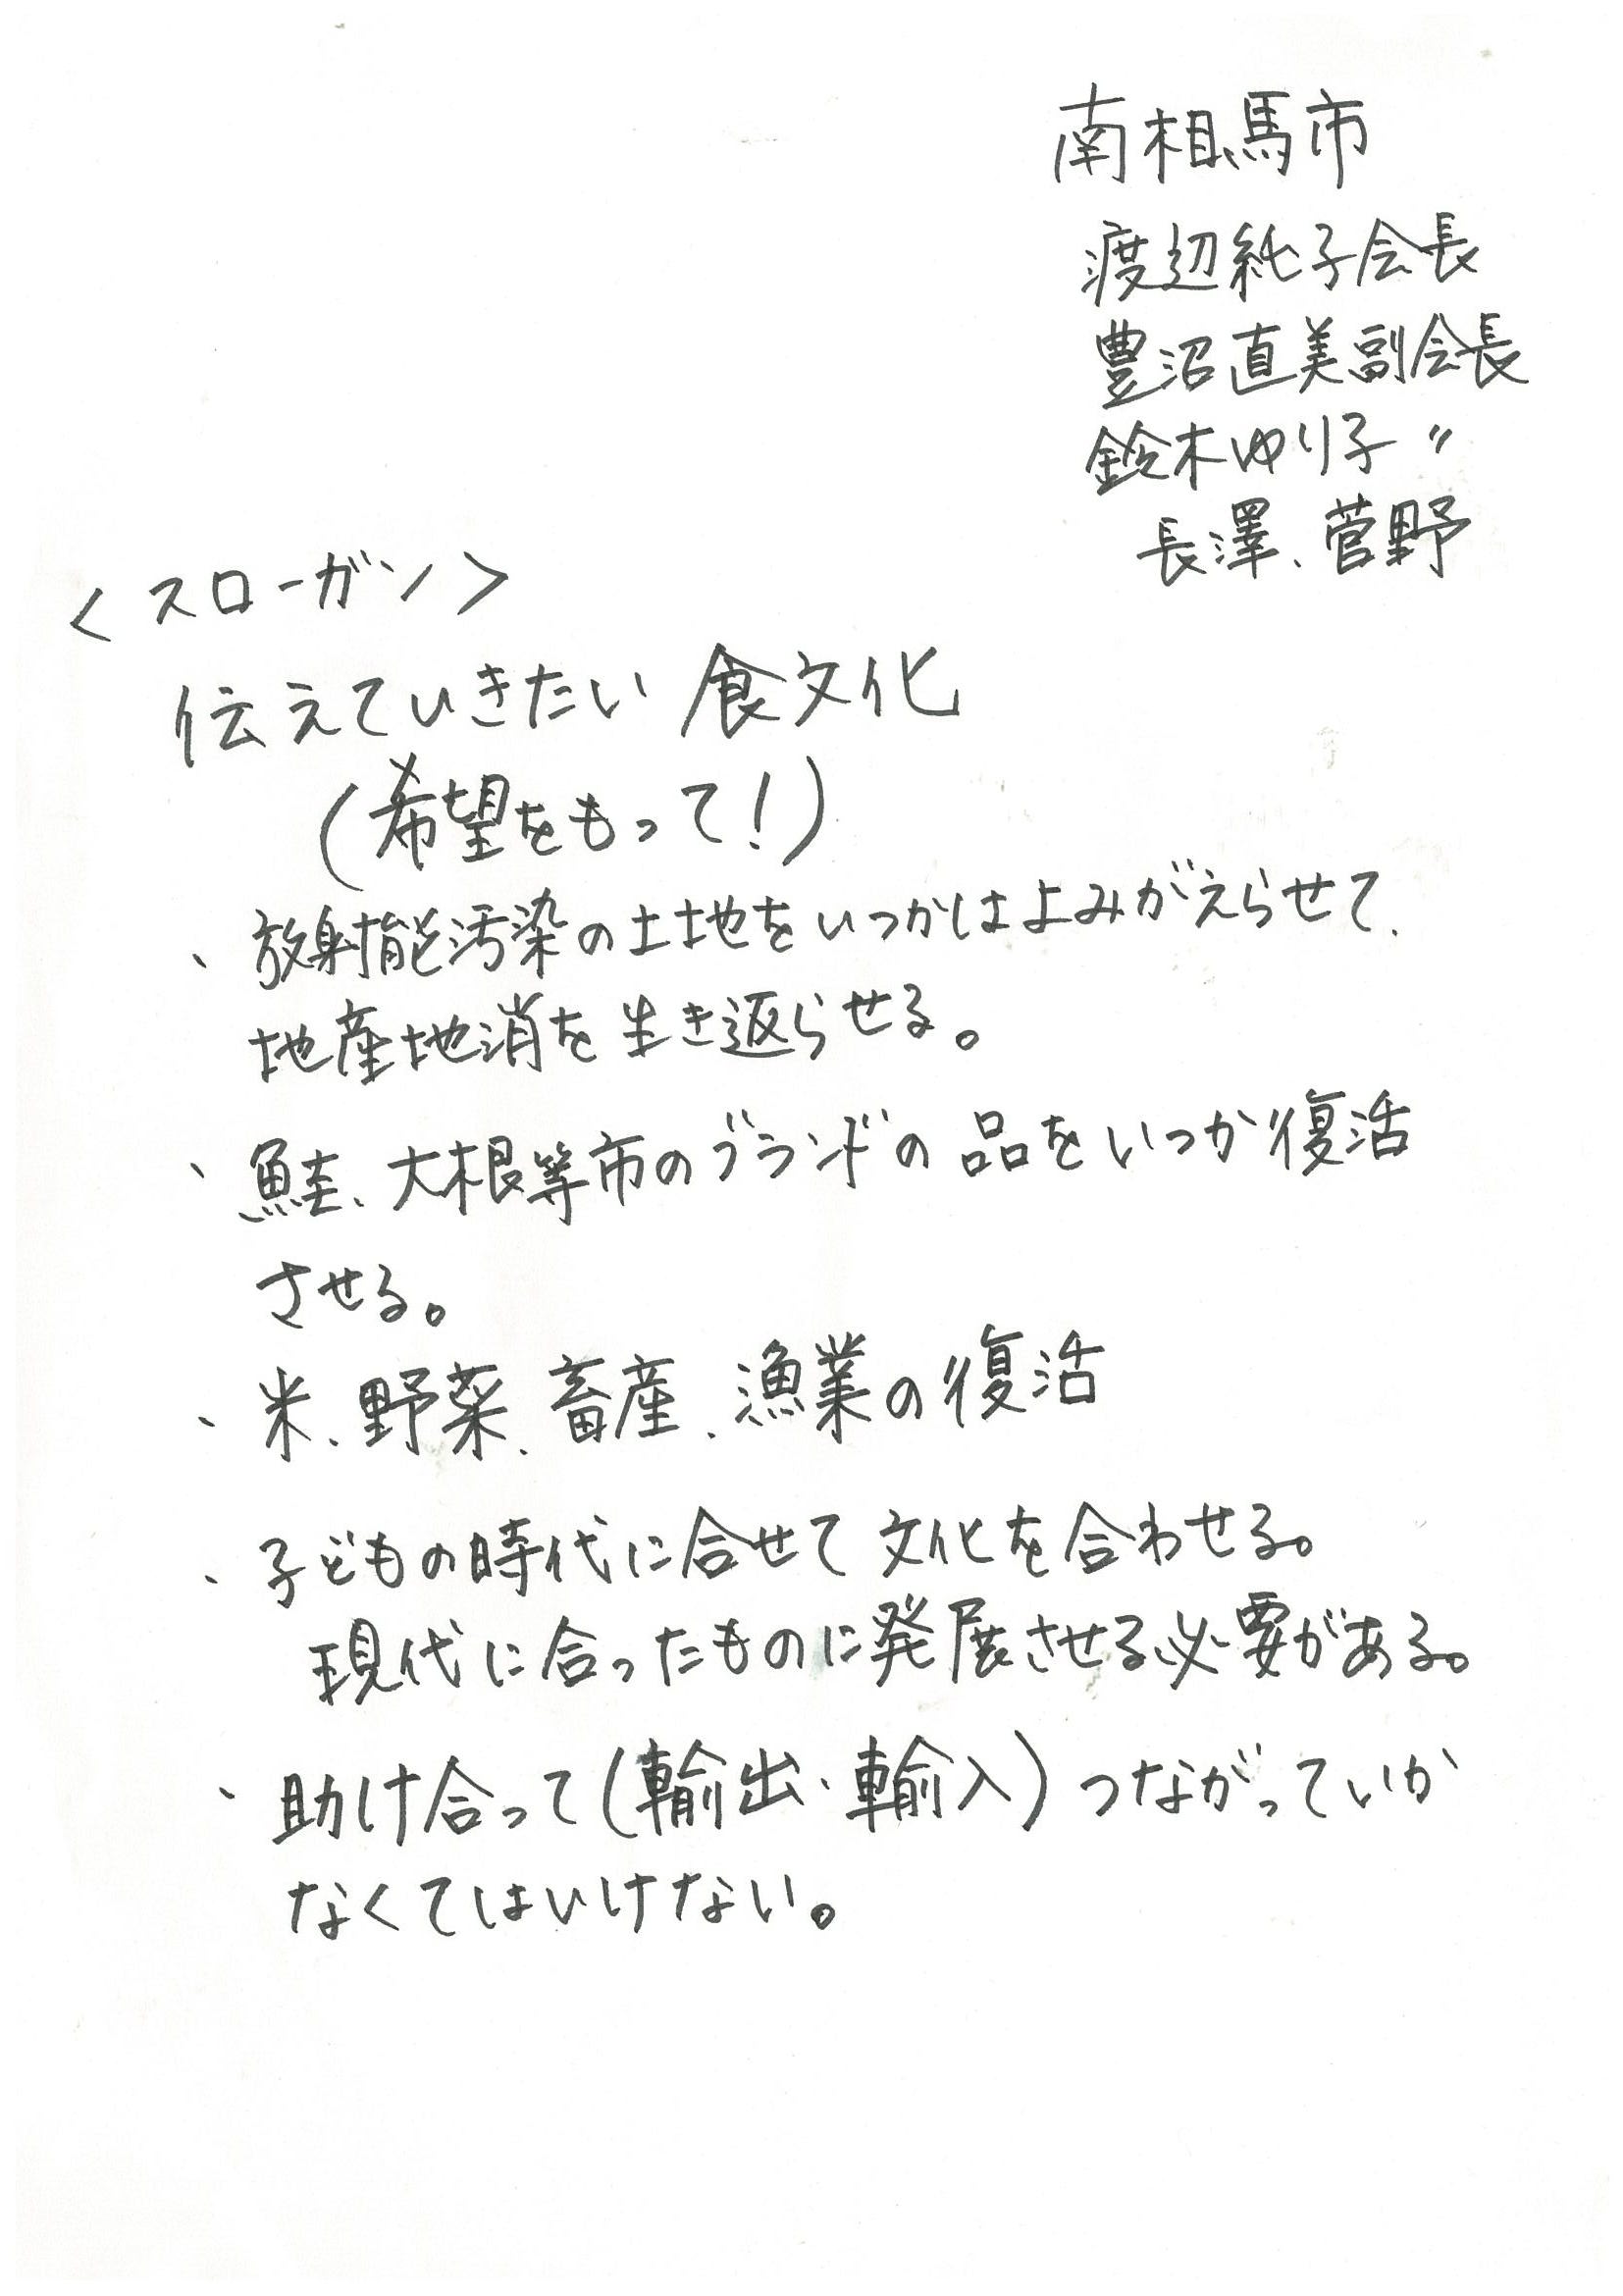 南相馬市
渡辺純子会長
豊沼直美副会長
鈴木ゆり子 〃
長澤、菅野
＜スローガン＞
伝えていきたい 食文化
（希望をもって！）
・放射能汚染の土地をいつかはよみがえらせて、
地産地消を生き返らせる。
・鮭、大根等市のブランドの品をいつか復活
させる。
・米、野菜、畜産、漁業の復活
・子どもの時代に合せて文化を合わせる。
現代に合ったものに発展させる必要がある。
・助け合って（輸出・輸入）つながっていか
なくてはいけない。